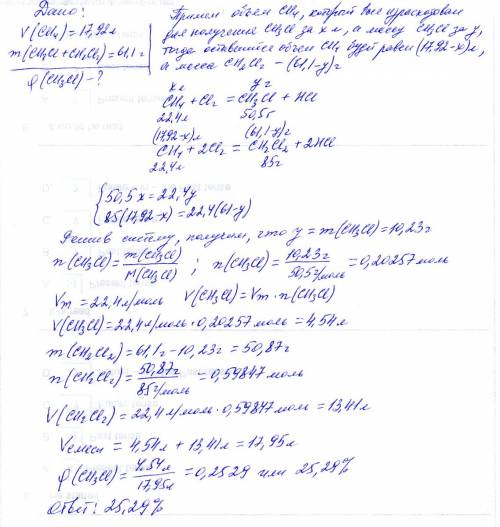 Дано:
V(CH₄) = 17,92л
m(CH₃Cl + CH₂Cl₂) = 61,1г
φ(CH₃Cl) – ?
Примем объем CH₄, который был израсходован
для получения CH₃Cl за x л, а массу CH₃Cl за y,
тогда оставшийся объем CH₄ будет равен (17,92-x)л,
а масса CH₂Cl₂ – (61,1-y)г
xл yг
CH₄ + Cl₂ = CH₃Cl + HCl
22,4л 50,5г
(17,92-x)л (61,1-y)г
CH₄ + 2Cl₂ = CH₂Cl₂ + 2HCl
22,4л 85г
{ 50,5x = 22,4y
85(17,92-x) = 22,4(61-y)
Решив систему, получим, что y = m(CH₃Cl) = 10,23г
n(CH₃Cl) = m(CH₃Cl)/M(CH₃Cl) ; n(CH₃Cl) = 10,23г/50,5г/моль = 0,20257моль
Vm = 22,4л/моль V(CH₃Cl) = Vm · n(CH₃Cl)
V(CH₃Cl) = 22,4л/моль · 0,20257моль = 4,54л
m(CH₂Cl₂) = 61,1г - 10,23г = 50,87г
n(CH₂Cl₂) = 50,87г/85г/моль = 0,59847моль
V(CH₂Cl₂) = 22,4л/моль · 0,59847моль = 13,41л
Vсмеси = 4,54л + 13,41л = 17,95л
φ(CH₃Cl) = 4,54л/17,95л = 0,2529 или 25,29%
Ответ: 25,29%